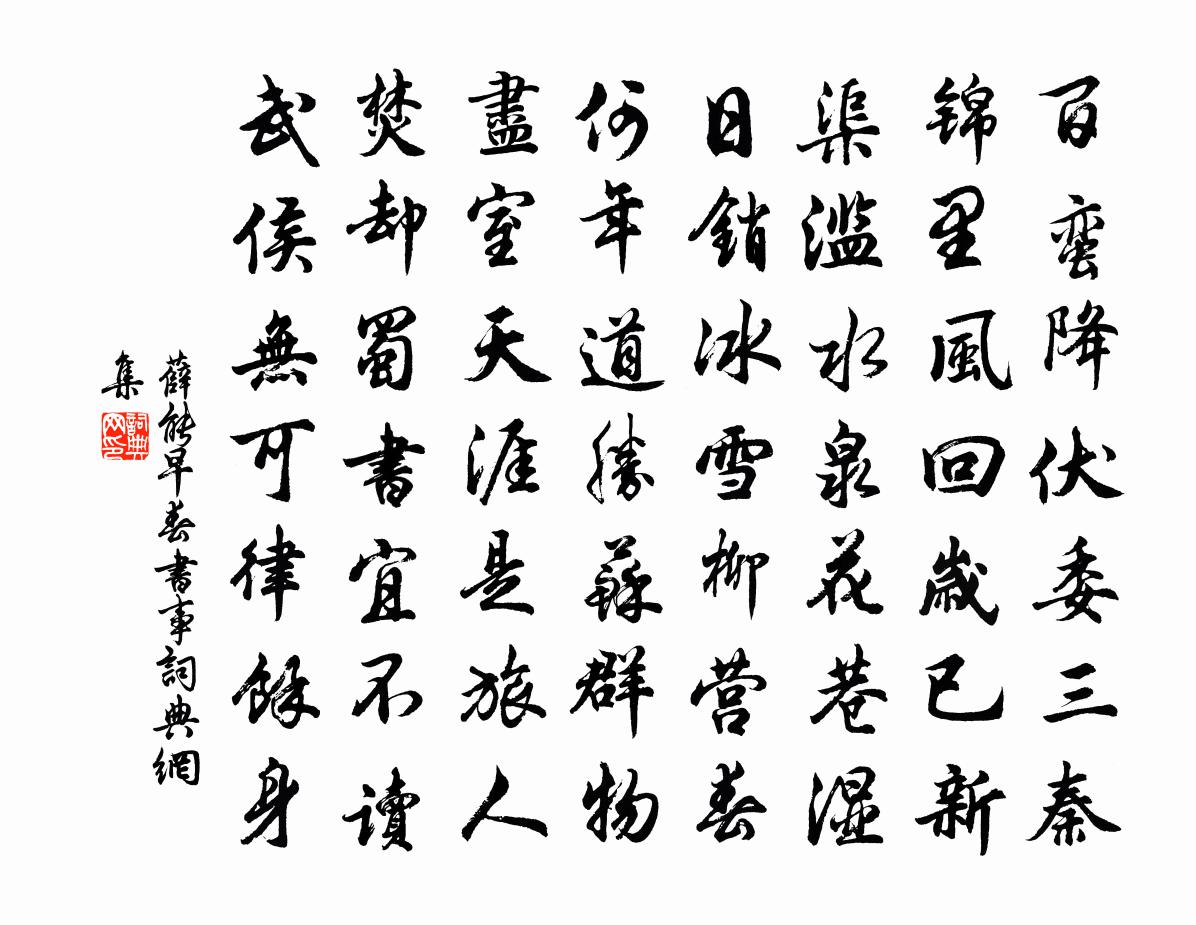 百蛮降伏委三秦
锦里風回歲已新
渠滥水泉花巷湿
日銷冰雪柳营春
何年道勝蘇群物
盡室天涯是旅人
焚却蜀書宜不讀
武侯無可律餘身
薛能早春書事詞典網
集
詞典网印